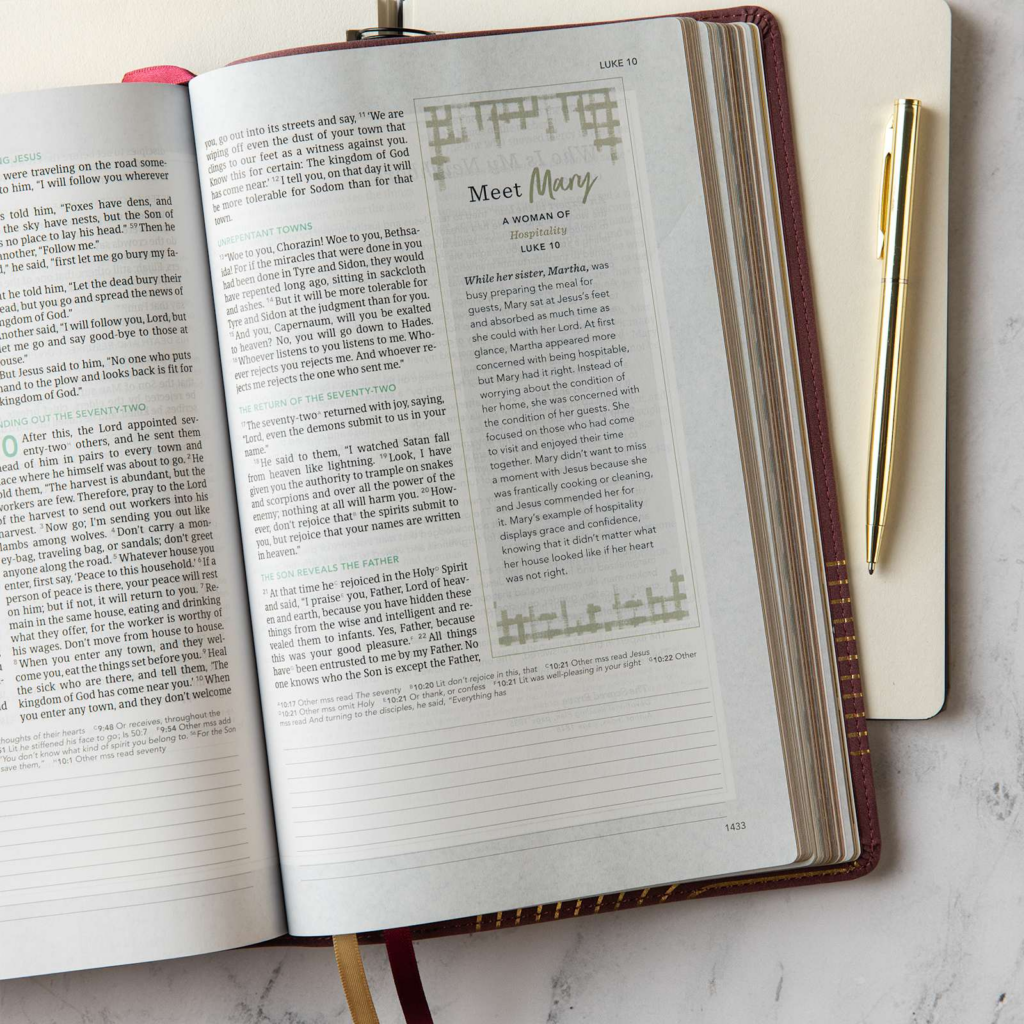 NG JESUS
were traveling on the road some-
to him, "I will follow you wherever
s told him, "Foxes have dens, and
the sky have nests, but the Son of
s no place to lay his head." 59 Then he
nother, "Follow me."
," he said, "first let me go bury my fa-
t he told him, "Let the dead bury their
ead, but you go and spread the news of
ngdom of God."
nother said, "I will follow you, Lord, but
let me go and say good-bye to those at
ouse."
But Jesus said to him, "No one who puts
hand to the plow and looks back is fit for
kingdom of God."
NDING OUT THE SEVENTY-TWO
0 After this, the Lord appointed sev-
enty-two others, and he sent them
head of him in pairs to every town and
lace where he himself was about to go. 2 He
old them, "The harvest is abundant, but the
workers are few. Therefore, pray to the Lord
of the harvest to send out workers into his
harvest. 3 Now go; I'm sending you out like
lambs among wolves. 4 Don't carry a mon-
ey-bag, traveling bag, or sandals; don't greet
anyone along the road. 5 Whatever house you
enter, first say, 'Peace to this household.' 6 If a
person of peace is there, your peace will rest
on him; but if not, it will return to you. 7 Re-
main in the same house, eating and drinking
what they offer, for the worker is worthy of
his wages. Don't move from house to house.
8 When you enter any town, and they wel-
come you, eat the things set before you. 9 Heal
the sick who are there, and tell them, 'The
kingdom of God has come near you.' 10 When
you enter any town, and they don't welcome
thoughts of their hearts 9:48 Or receives, throughout the
51 Lit he stiffened his face to go; Is 50:7 9:54 Other mss add
"You don't know what kind of spirit you belong to. 56 For the Son
save them," 10:1 Other mss read seventy
LUKE 10
you, go out into its streets and say, 11 'We are
wiping off even the dust of your town that
clings to our feet as a witness against you.
Know this for certain: The kingdom of God
has come near.' 12 I tell you, on that day it will
be more tolerable for Sodom than for that
town.
UNREPENTANT TOWNS
13 "Woe to you, Chorazin! Woe to you, Bethsa-
ida! For if the miracles that were done in you
had been done in Tyre and Sidon, they would
have repented long ago, sitting in sackcloth
and ashes. 14 But it will be more tolerable for
Tyre and Sidon at the judgment than for you.
15 And you, Capernaum, will you be exalted
to heaven? No, you will go down to Hades.
16 Whoever listens to you listens to me. Who-
ever rejects you rejects me. And whoever re-
jects me rejects the one who sent me."
THE RETURN OF THE SEVENTY-TWO
17 The seventy-two returned with joy, saying,
"Lord, even the demons submit to us in your
name."
18 He said to them, "I watched Satan fall
from heaven like lightning. 19 Look, I have
given you the authority to trample on snakes
and scorpions and over all the power of the
enemy; nothing at all will harm you. 20 How-
ever, don't rejoice that the spirits submit to
you, but rejoice that your names are written
in heaven."
THE SON REVEALS THE FATHER
21 At that time he rejoiced in the Holy Spirit
and said, "I praise you, Father, Lord of heav-
en and earth, because you have hidden these
things from the wise and intelligent and re-
vealed them to infants. Yes, Father, because
this was your good pleasure. 22 All things
have been entrusted to me by my Father. No
one knows who the Son is except the Father,
10:17 Other mss read The seventy 10:20 Lit don't rejoice in this, that 10:21 Other mss read Jesus
10:21 Other mss omit Holy 10:21 Or thank, or confess 10:21 Lit was well-pleasing in your sight 10:22 Other
mss read And turning to the disciples, he said, "Everything has
Meet Mary
A WOMAN OF
Hospitality
LUKE 10
While her sister, Martha, was
busy preparing the meal for
guests, Mary sat at Jesus's feet
and absorbed as much as time as
she could with her Lord. At first
glance, Martha appeared more
concerned with being hospitable,
but Mary had it right. Instead of
worrying about the condition of
her home, she was concerned with
the condition of her guests. She
focused on those who had come
to visit and enjoyed their time
together. Mary didn't want to miss
a moment with Jesus because she
was frantically cooking or cleaning,
and Jesus commended her for
it. Mary's example of hospitality
displays grace and confidence,
knowing that it didn't matter what
her house looked like if her heart
was not right.
1433